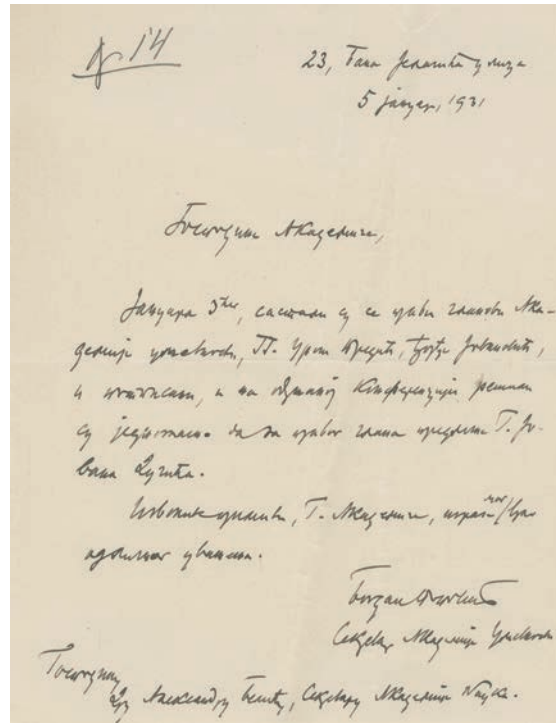 14
23, Бана Јелачића улица
5 јануар, 1931
Господине Академиче,
Јануара 3ћег, састали су се прави чланови Ака-
демије уметности, ГГ. Урош Предић, Ђорђе Јовановић,
и потписани, и на одржаној конференцији решили
су једногласно да за правог члана предложе Г. Јо-
вана Дучића.
Изволите примити, Г. Академиче, израз мог
одличног уважења.
Богдан Поповић
Секретар Академије Уметности
Господину
Др Александру Белићу, Секретару Академије Наука.